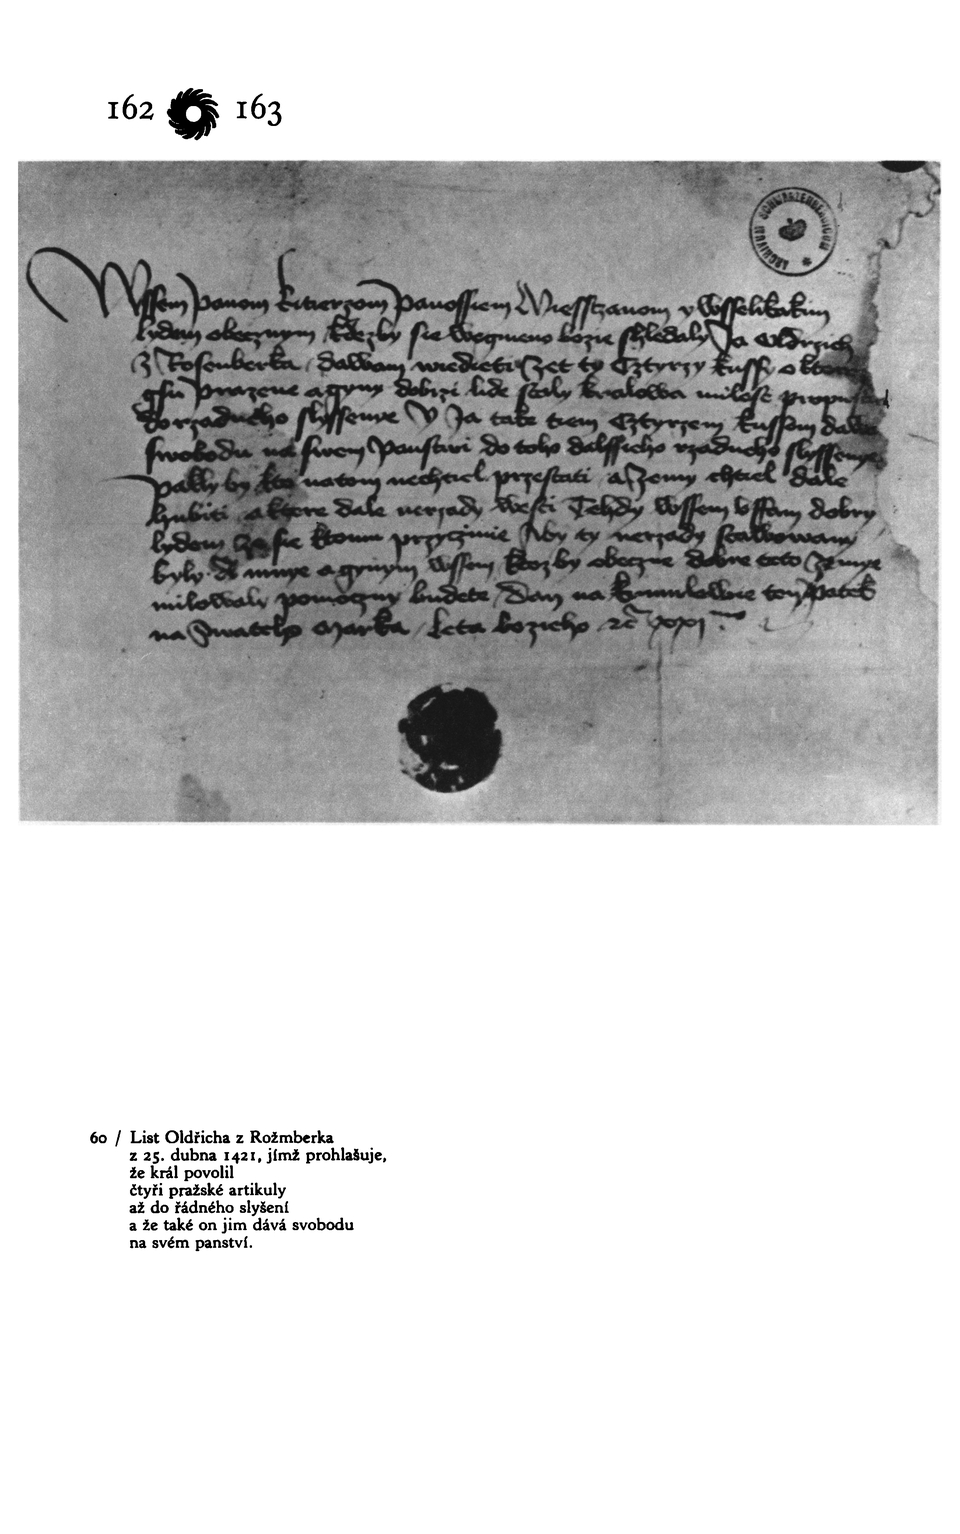 162 163
ARCHIVUM SCHWARZENBERGICUM
Wssem panom Ritierzom panossiem Miesstzanom y wsselikakim
lydem obecznym ktozby sie wegmeno bozie shledaly Ja Oldrzich
z Rosenberka dawam wiedieti zet ty Cztyrzy kussy o ktere
gsu prazene a gyny dobrzi lide staly kralowa milost
do rzadneho slyssenye y Ja take tiem Cztyrzem kussom
swobodu na swem panstwi do toho dalssieho rzadneho slyssenye
pakly by kto natom nechtiel przestati a zemy chtiel dale
hubiti a ktere dale nerzady westi Tehdy wssem dobry
lydem sie ktomu przyczinie Aby ty nerzady stawowany
byly A mnye a gynym wssem ktozby obeczne dobre teto zemye
milowaly pomoczny budete Dan na krumlowie ten patek
na Swateho Marka Leta bozieho
60 / List Oldřicha z Rožmberka
z 25. dubna 1421, jímž prohlašuje,
že král povolil
čtyři pražské artikuly
až do řádného slyšení
a že také on jim dává svobodu
na svém panství.